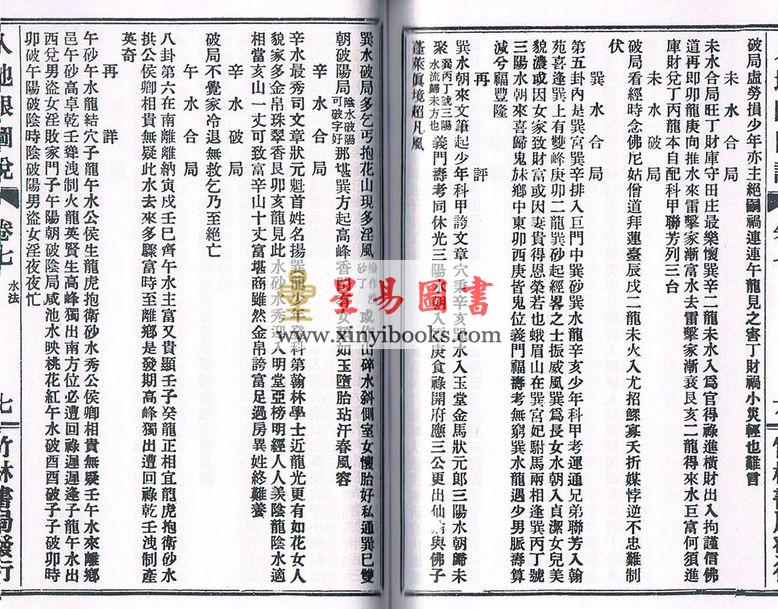 破局虛勞損少年亦主絕嗣禍連連午龍見之害丁財禍小災輕也難言
未水合局
未水合局旺丁財庫守田庄最樂懷巽辛二龍未水入為官得祿進橫財出入拘謹信佛
道再即卯龍庚向推水來雷擊家漸富水去雷擊家漸衰艮亥二龍得來水巨富何須進
庫財兌丁丙龍本自配科甲聯芳列三台
未水破局
破局看經時念佛尼姑僧道拜蓮臺辰戌二龍未火入尤招鰥寡夭折媒悖逆不忠難制
伏
巽水合局
第五卦內是巽宮巽辛排入巨門中巽砂巽水龍辛亥少年科甲考運通兄弟聯芳入翰
苑喜逢巽上有雙峰庚卯二龍巽砂起經畧之士振威風巽為長女水朝入貞潔女兒美
貌濃或因女家致財富或因妻貴得恩榮若也蛾眉山在巽宮妃駙馬兩相逢巽丙丁號
三陽水朝來喜歸鬼妹鄉中東卯西庚皆鬼位義門福壽考無窮巽水龍遇少男脈壽算
減兮福豐隆
再評
巽水朝來文筆起少年科甲誇文章穴秉辛亥巽水入玉堂金馬狀元郎三陽水朝歸未
聚巽丙丁號三陽水流歸未方也義門壽考同休光三陽水朝入庚食祿開府應三公更出仙流與佛子
蓬萊眞境超凡風
巽水破局多乞丐抱花山現多淫風或作山碎水斜側室女懷胎好私通巽巳雙
朝破陽局陰水破陽可破字好那堪巽方起高峰香閨有女顏如玉墮胎玷汗春風容
辛水合局
辛水最秀司文章狀元魁首姓名揚巽龍少年登科第翰林學士近龍光更有如花女人
貌家多金帛珠翠香艮卯亥龍見此水砂水秀迎入明堂亞榜明經人人羨陰龍陰水適
相當亥山一丈可致富辛山十丈富堪商雖然金帛誇富足過房異姓終難養
辛水破局
破局不覺家冷退無救乞乃至絕亡
午水合局
八卦第六在南離離納寅戌壬巳齊午水主富又貴顯壬子癸龍正相宜龍虎抱衛砂水
拱公侯卿相貴無疑此水去來多驟富時至離鄉是發期高峰獨出遭回祿乾壬洩制產
英奇
再詳
午砂午水龍結穴子龍午水公侯生龍虎抱衛砂水秀公侯卿相貴無疑壬午水來離鄉
邑午砂高卓乾壬聳洩制火龍英賢生高峰獨出南方位必遭回祿遲遲逢子龍午水出
西兌男盜女淫敗家門子午陽朝破陽局咸池水映桃花紅午水破酉酉破子子破卯時
卯破午陽破陰時陰破陽男盜女淫夜夜忙
人地眼圖說 卷七 水法 七 竹林書局發行
星易圖書
www.xinyibooks.com